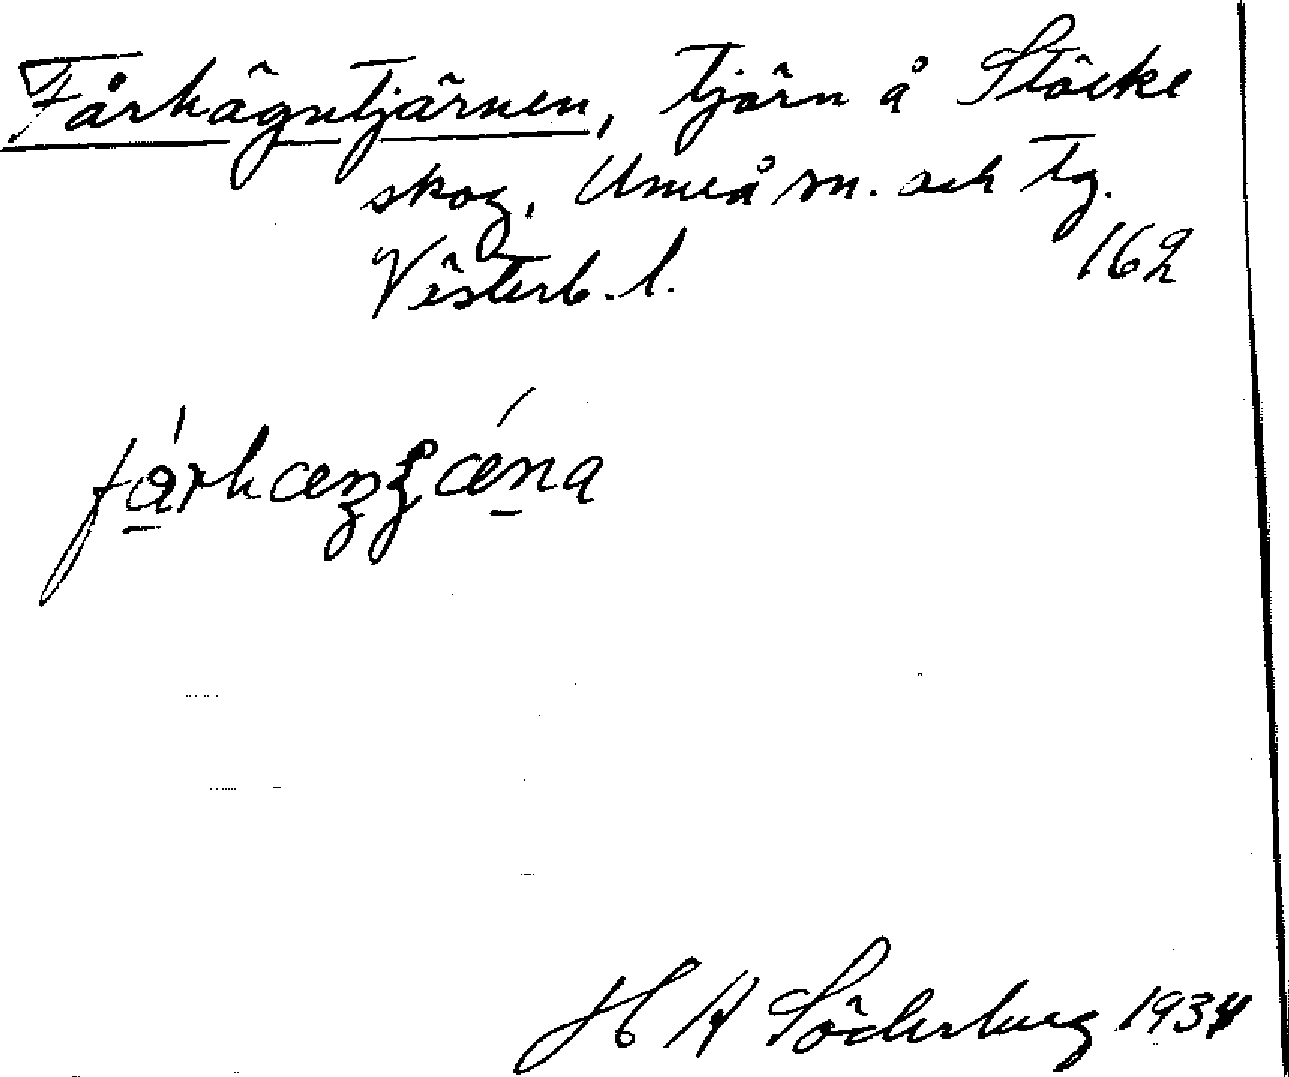 Fårhägntjärnen, tjärn å Stöcke
skog, Umeå sn. och tg.
Västerb. l. 162
H A Söderberg 1934